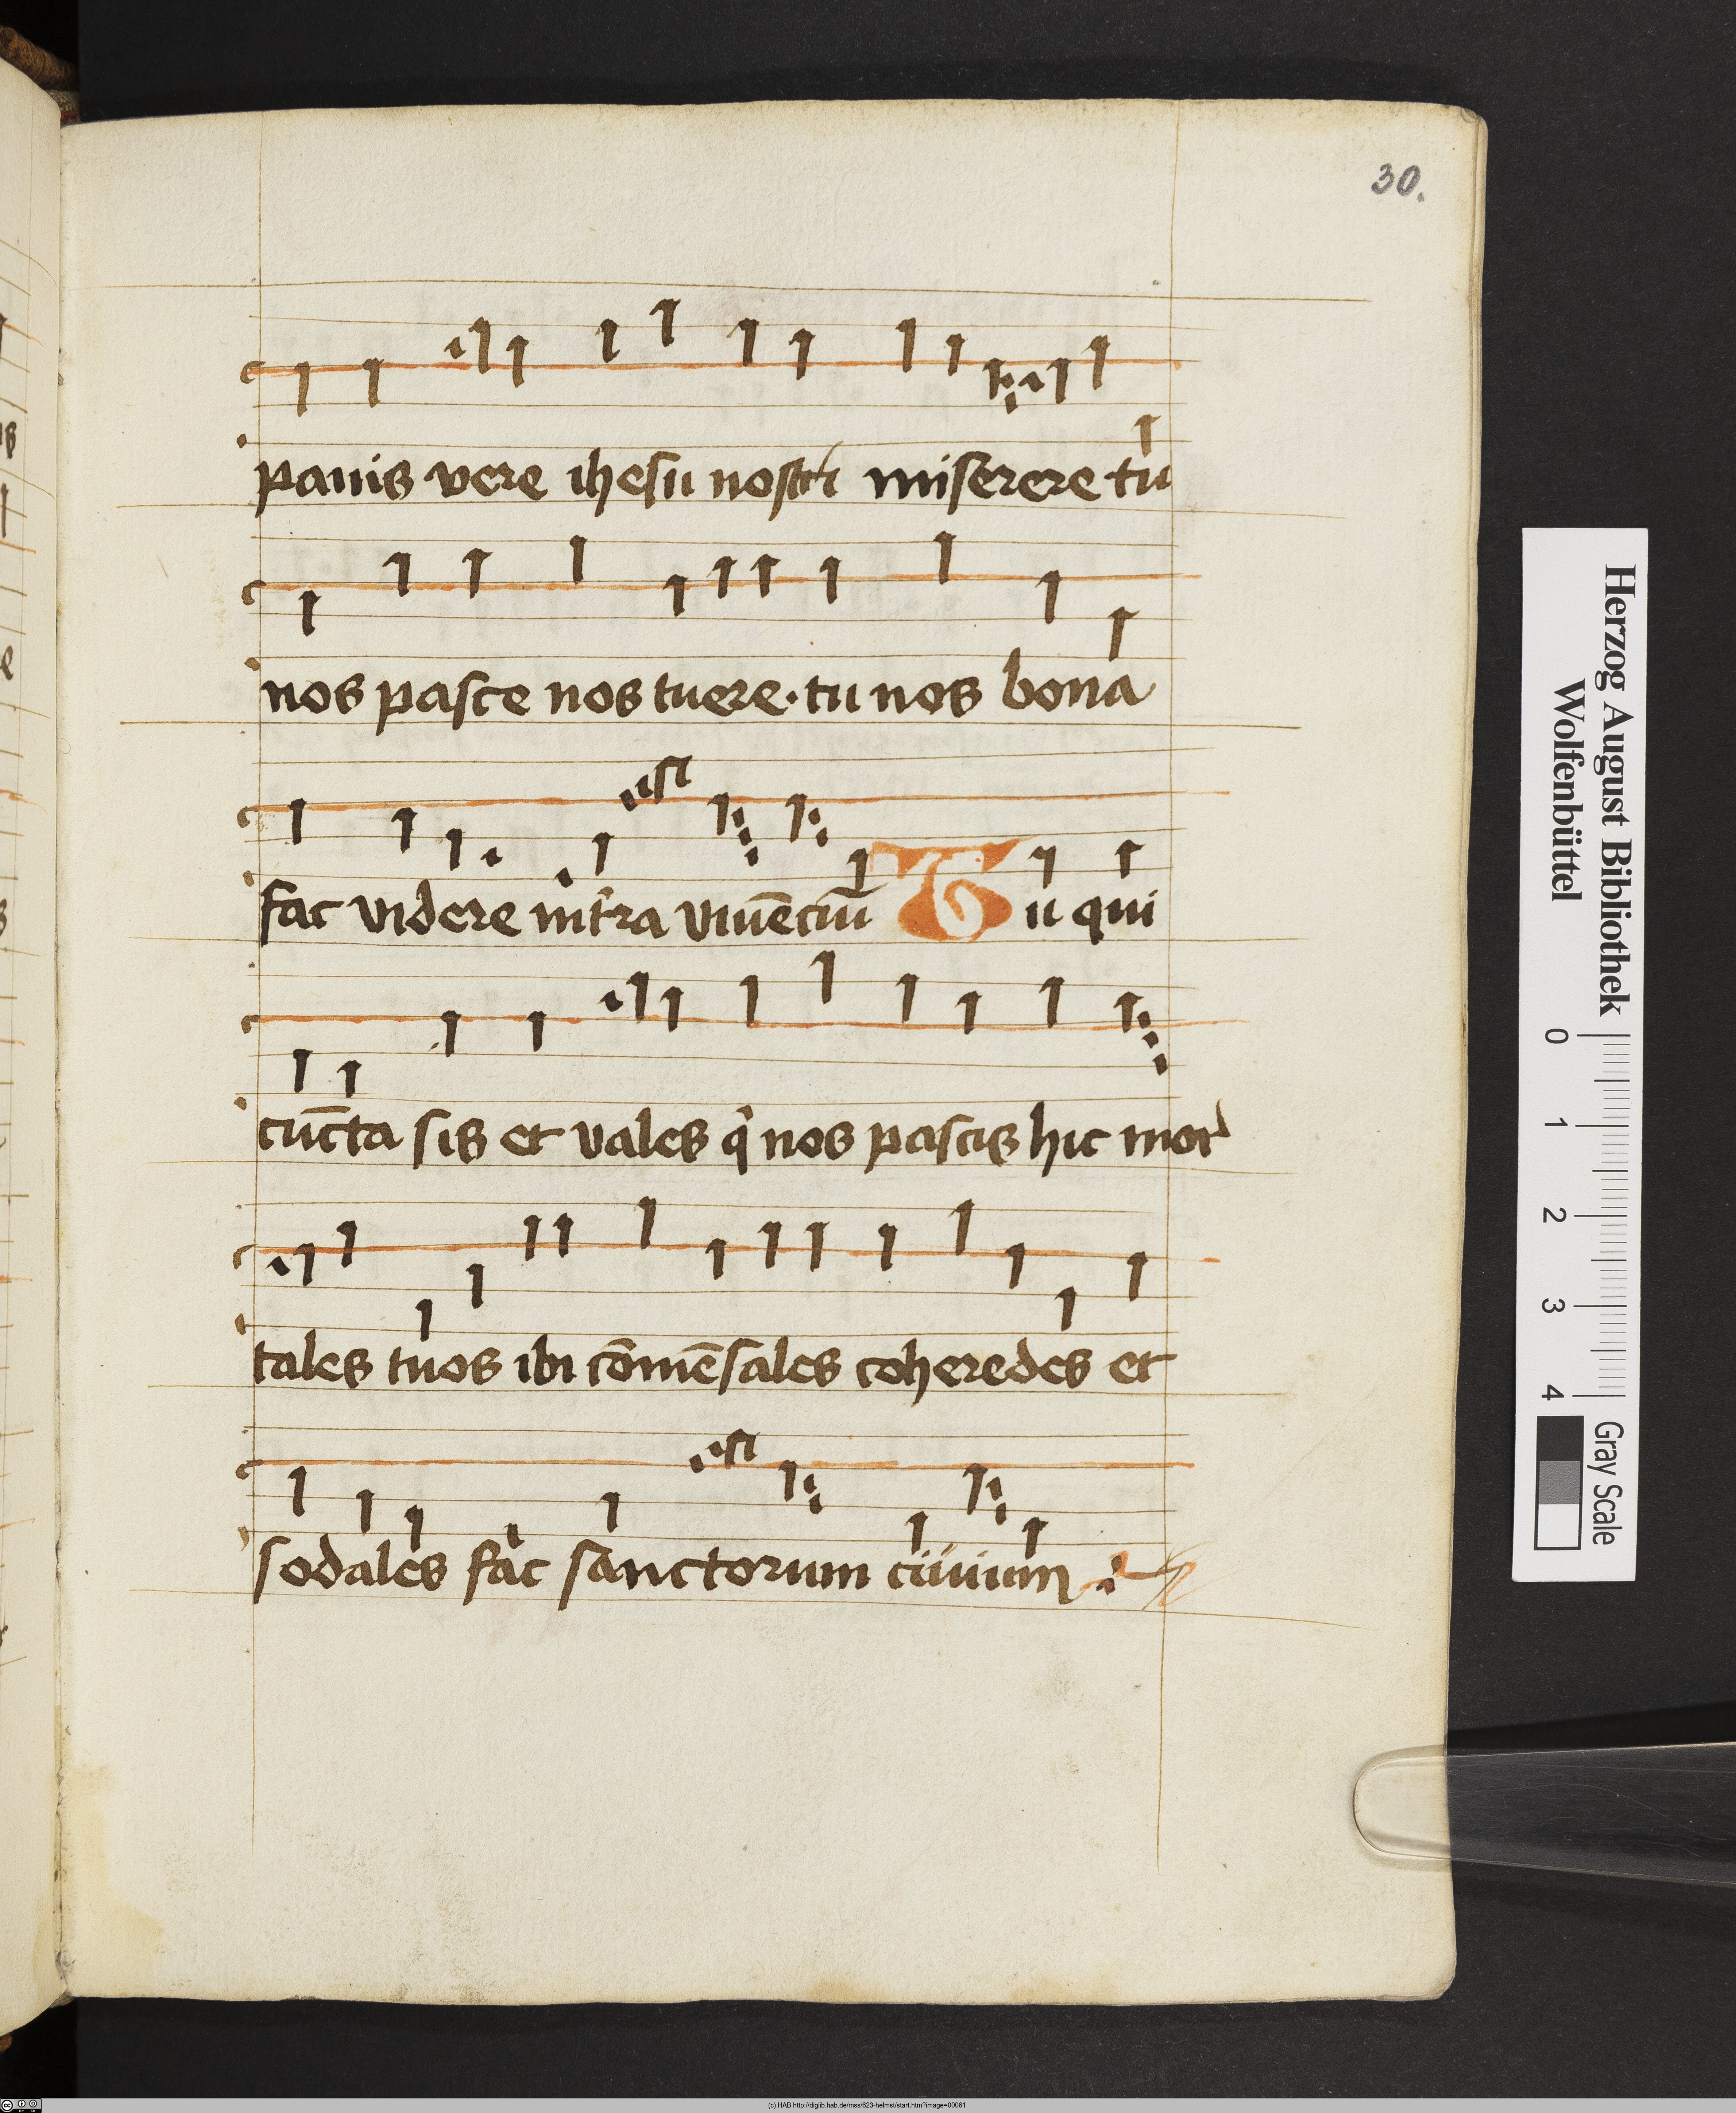 30.
panis vere ihesu nostri miserere tu
nos pasce nos tuere · tu nos bona
est
fac videre int̄ra viuēciū Tu qui
cūcta sis et vales q̇ nos pascis hic mor
tales tuos ibi cōmēsales coheredes et
est
sodales fac sanctorum ciuium
Herzog August Bibliothek
Wolfenbüttel
0 1 2 3 4
Gray Scale
(c) HAB http://diglib.hab.de/mss/623-helmst/start.htm?image=00061